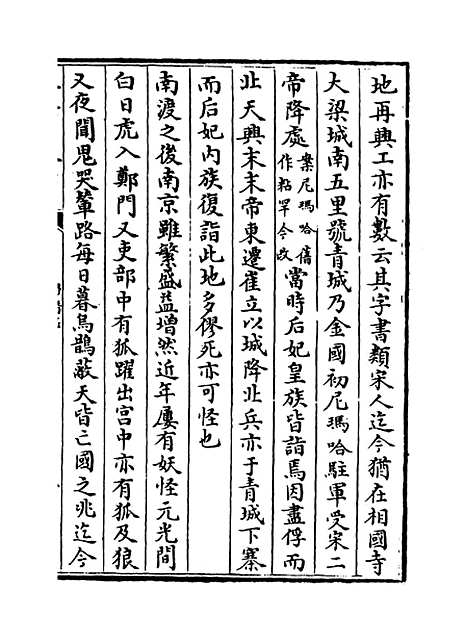 地再興工亦有數云其字書類宋人迄今猶在相國寺
大梁城南五里號青城乃金國初尼瑪哈駐軍受宋二
帝降處案尼瑪哈舊作粘罕今改當時后妃皇族皆詣焉因盡俘而
北天興末末帝東遷崔立以城降北兵亦于青城下寨
而后妃内族復詣此地多僇死亦可怪也
南渡之後南京雖繁盛益增然近年屢有妖怪元光間
白日虎入鄭門又吏部中有狐躍出宫中亦有狐及狼
又夜聞鬼哭輦路每日暮烏鵲蔽天皆亡國之兆迄今